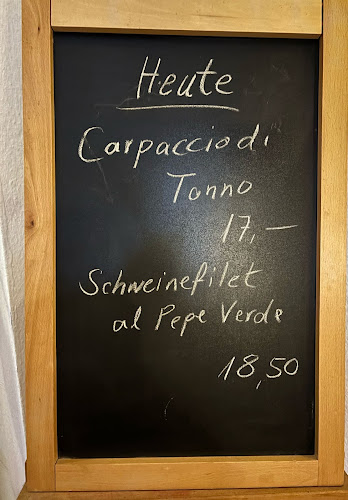 Heute
Carpaccio di
Tonno
17,—
Schweinefilet
al Pepe Verde
18,50